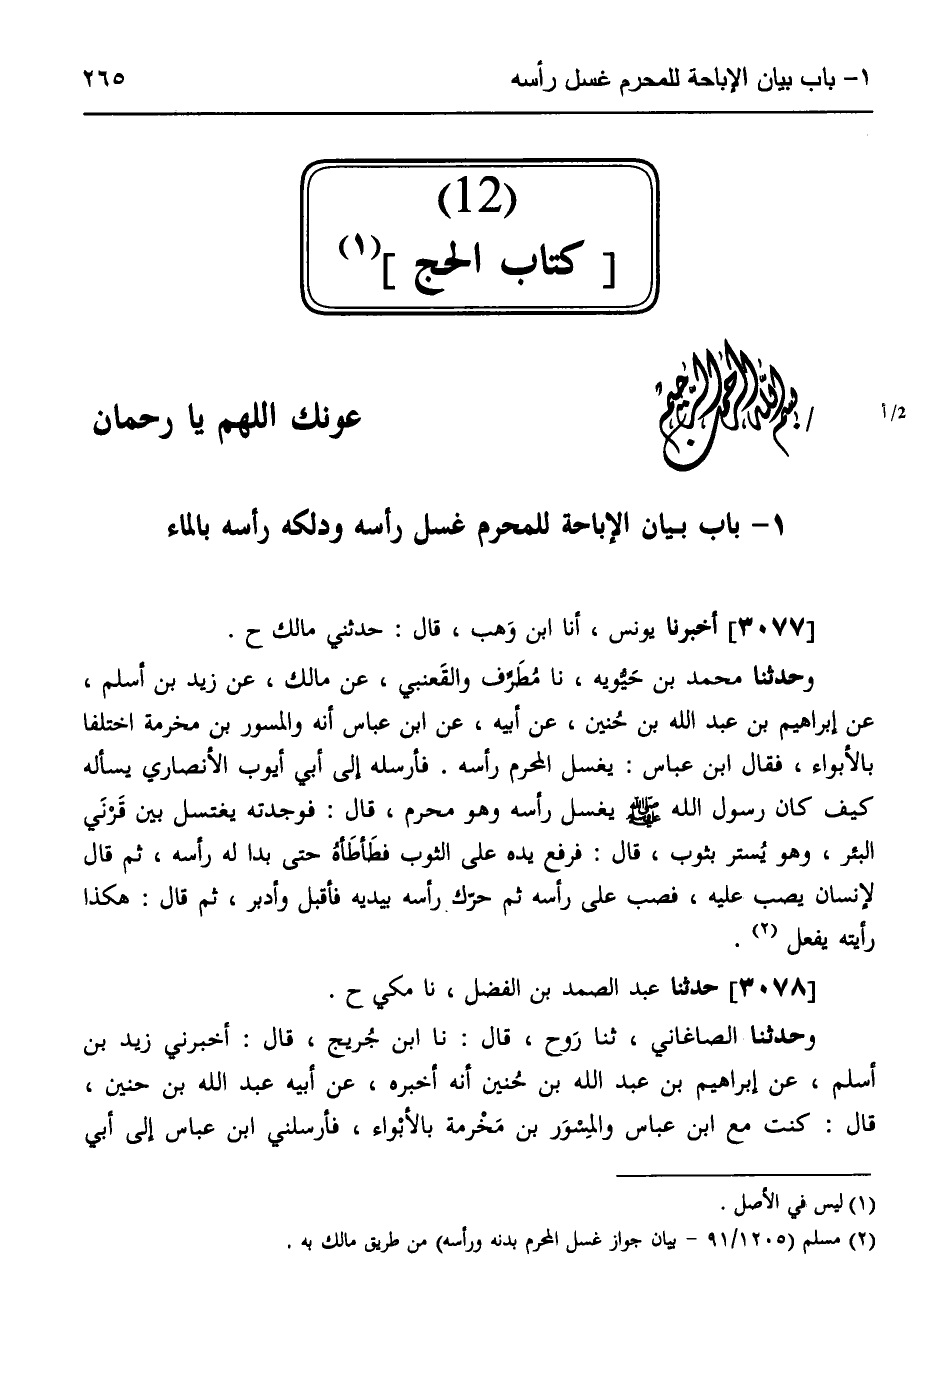 ١- باب بيان الإباحة للمحرم غسل رأسه ٢٦٥
(12)
[ كتاب الحج ](١)
بسم الله الرحمن الرحيم / 2/أ
عونك اللهم يا رحمان
١- باب بيان الإباحة للمحرم غسل رأسه ودلكه رأسه بالماء
[٣٠٧٧] أخبرنا يونس ، أنا ابن وَهب ، قال : حدثني مالك ح .
وحدثنا محمد بن حَيُّويه ، نا مُطَرِّف والقَعنبي ، عن مالك ، عن زيد بن أسلم ،
عن إبراهيم بن عبد الله بن حُنين ، عن أبيه ، عن ابن عباس أنه والمسور بن مخرمة اختلفا
بالأبواء ، فقال ابن عباس : يغسل المحرم رأسه . فأرسله إلى أبي أيوب الأنصاري يسأله
كيف كان رسول الله ﷺ يغسل رأسه وهو محرم ، قال : فوجدته يغتسل بين قَرْنَي
البئر ، وهو يُستر بثوب ، قال : فرفع يده على الثوب فطَأطَأهُ حتى بدا له رأسه ، ثم قال
لإنسان يصب عليه ، فصب على رأسه ثم حرّك رأسه بيديه فأقبل وأدبر ، ثم قال : هكذا
رأيته يفعل (٢) .
[٣٠٧٨] حدثنا عبد الصمد بن الفضل ، نا مكي ح .
وحدثنا الصاغاني ، ثنا رَوح ، قال : نا ابن جُريج ، قال : أخبرني زيد بن
أسلم ، عن إبراهيم بن عبد الله بن حُنين أنه أخبره ، عن أبيه عبد الله بن حنين ،
قال : كنت مع ابن عباس والمِسْوَر بن مَخْرمة بالأبْواء ، فأرسلني ابن عباس إلى أبي
(١) ليس في الأصل .
(٢) مسلم (٩١/١٢٠٥ - بيان جواز غسل المحرم بدنه ورأسه) من طريق مالك به .